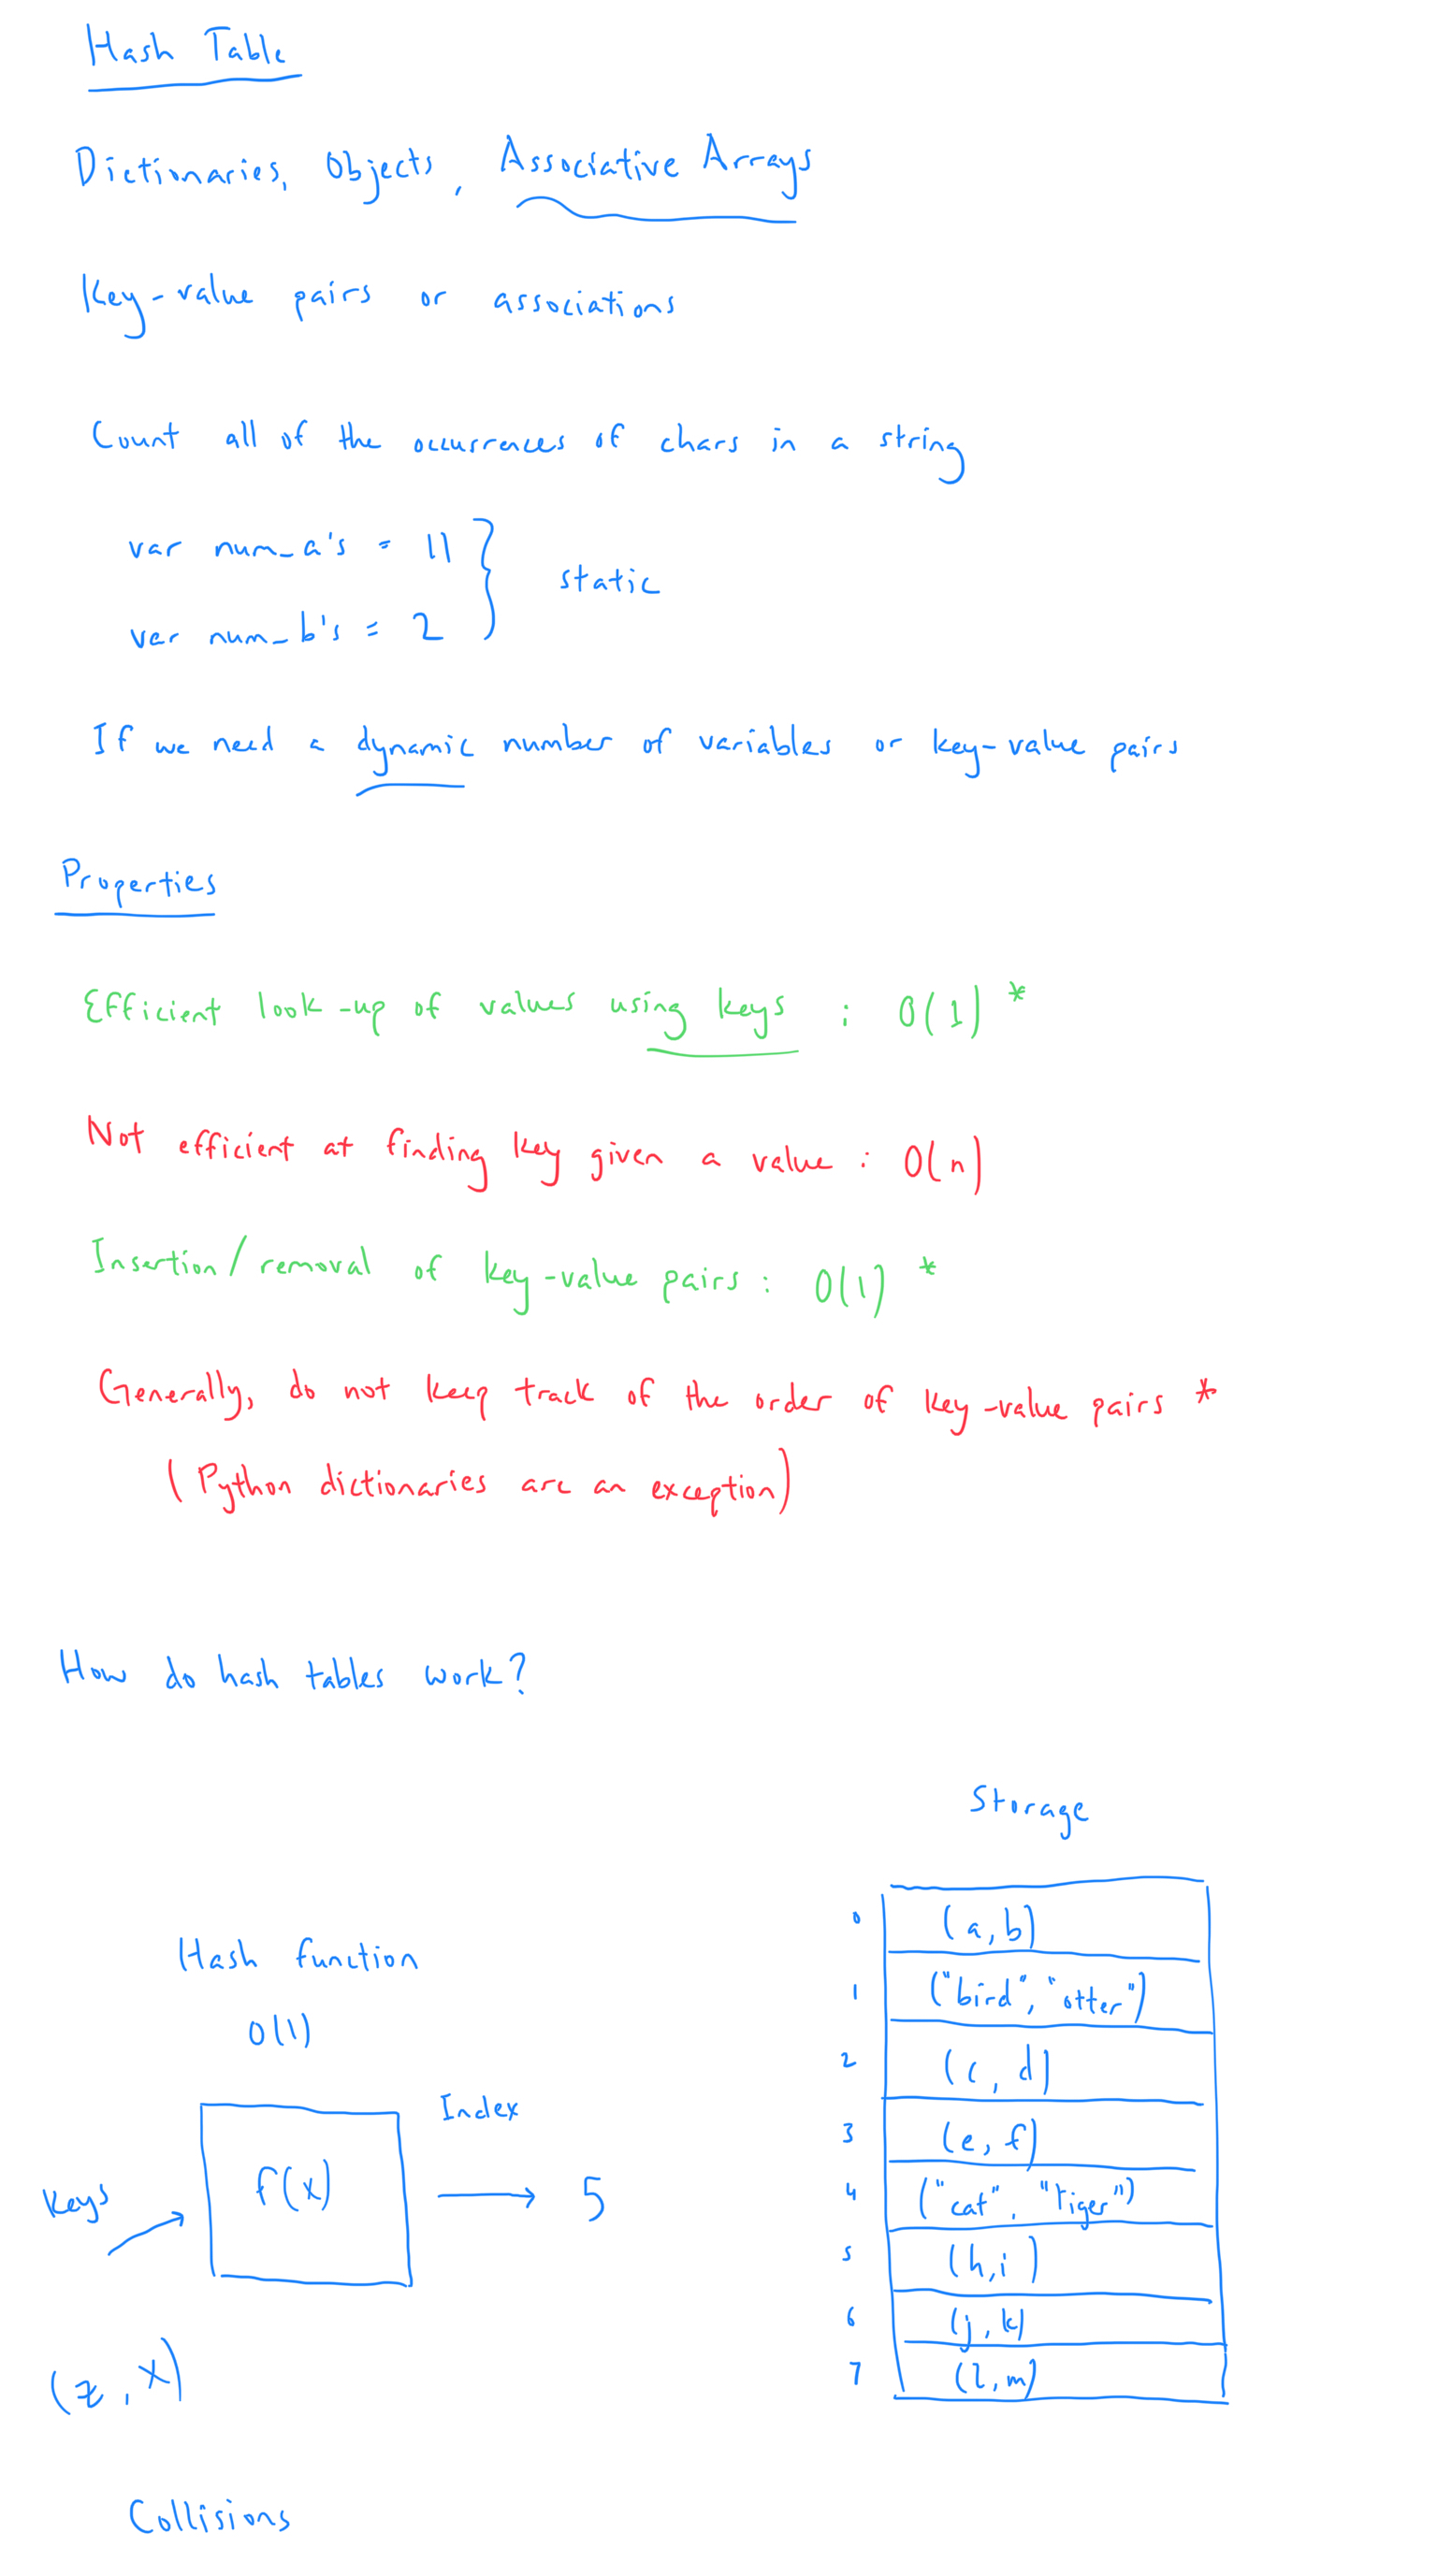 Hash Table
Dictionaries, Objects, Associative Arrays
Key-value pairs or associations
Count all of the occurrences of chars in a string
var num_a's = 11
var num_b's = 2
static
If we need a dynamic number of variables or key-value pairs
Properties
Efficient look-up of values using keys : O(1) *
Not efficient at finding key given a value : O(n)
Insertion/removal of key-value pairs : O(1) *
Generally, do not keep track of the order of key-value pairs *
(Python dictionaries are an exception)
How do hash tables work?
Storage
Hash function
O(1)
Keys
f(x)
Index
5
(z, x)
0 (a,b)
1 ("bird", "otter")
2 (c, d)
3 (e, f)
4 ("cat", "tiger")
5 (h,i)
6 (j, k)
7 (l, m)
Collisions